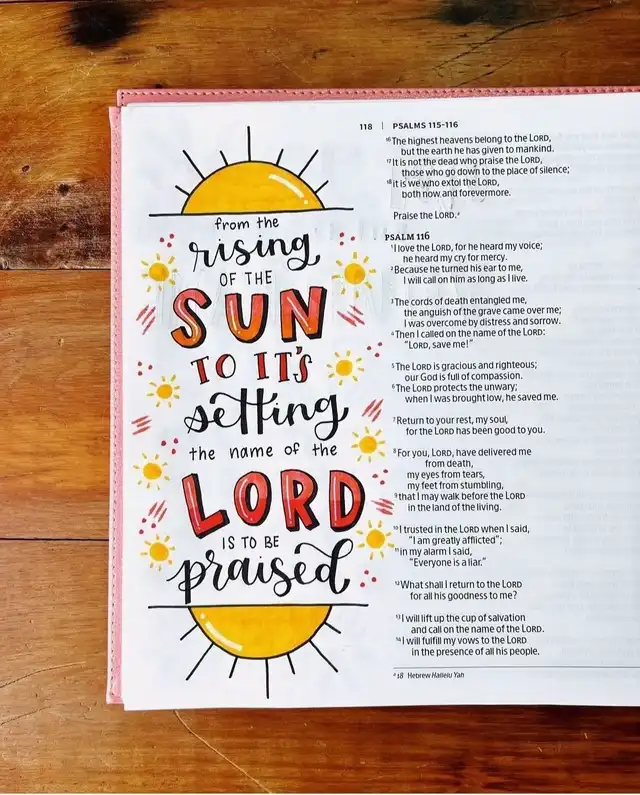 118 | PSALMS 115–116
from the
rising
OF THE
SUN
TO IT'S
setting
the name of the
LORD
IS TO BE
praised
16 The highest heavens belong to the LORD,
but the earth he has given to mankind.
17 It is not the dead who praise the LORD,
those who go down to the place of silence;
18 it is we who extol the LORD,
both now and forevermore.
Praise the LORD.a
PSALM 116
1 I love the LORD, for he heard my voice;
he heard my cry for mercy.
2 Because he turned his ear to me,
I will call on him as long as I live.
3 The cords of death entangled me,
the anguish of the grave came over me;
I was overcome by distress and sorrow.
4 Then I called on the name of the LORD:
"LORD, save me!"
5 The LORD is gracious and righteous;
our God is full of compassion.
6 The LORD protects the unwary;
when I was brought low, he saved me.
7 Return to your rest, my soul,
for the LORD has been good to you.
8 For you, LORD, have delivered me
from death,
my eyes from tears,
my feet from stumbling,
9 that I may walk before the LORD
in the land of the living.
10 I trusted in the LORD when I said,
"I am greatly afflicted";
11 in my alarm I said,
"Everyone is a liar."
12 What shall I return to the LORD
for all his goodness to me?
13 I will lift up the cup of salvation
and call on the name of the LORD.
14 I will fulfill my vows to the LORD
in the presence of all his people.
a 18 Hebrew Hallelu Yah